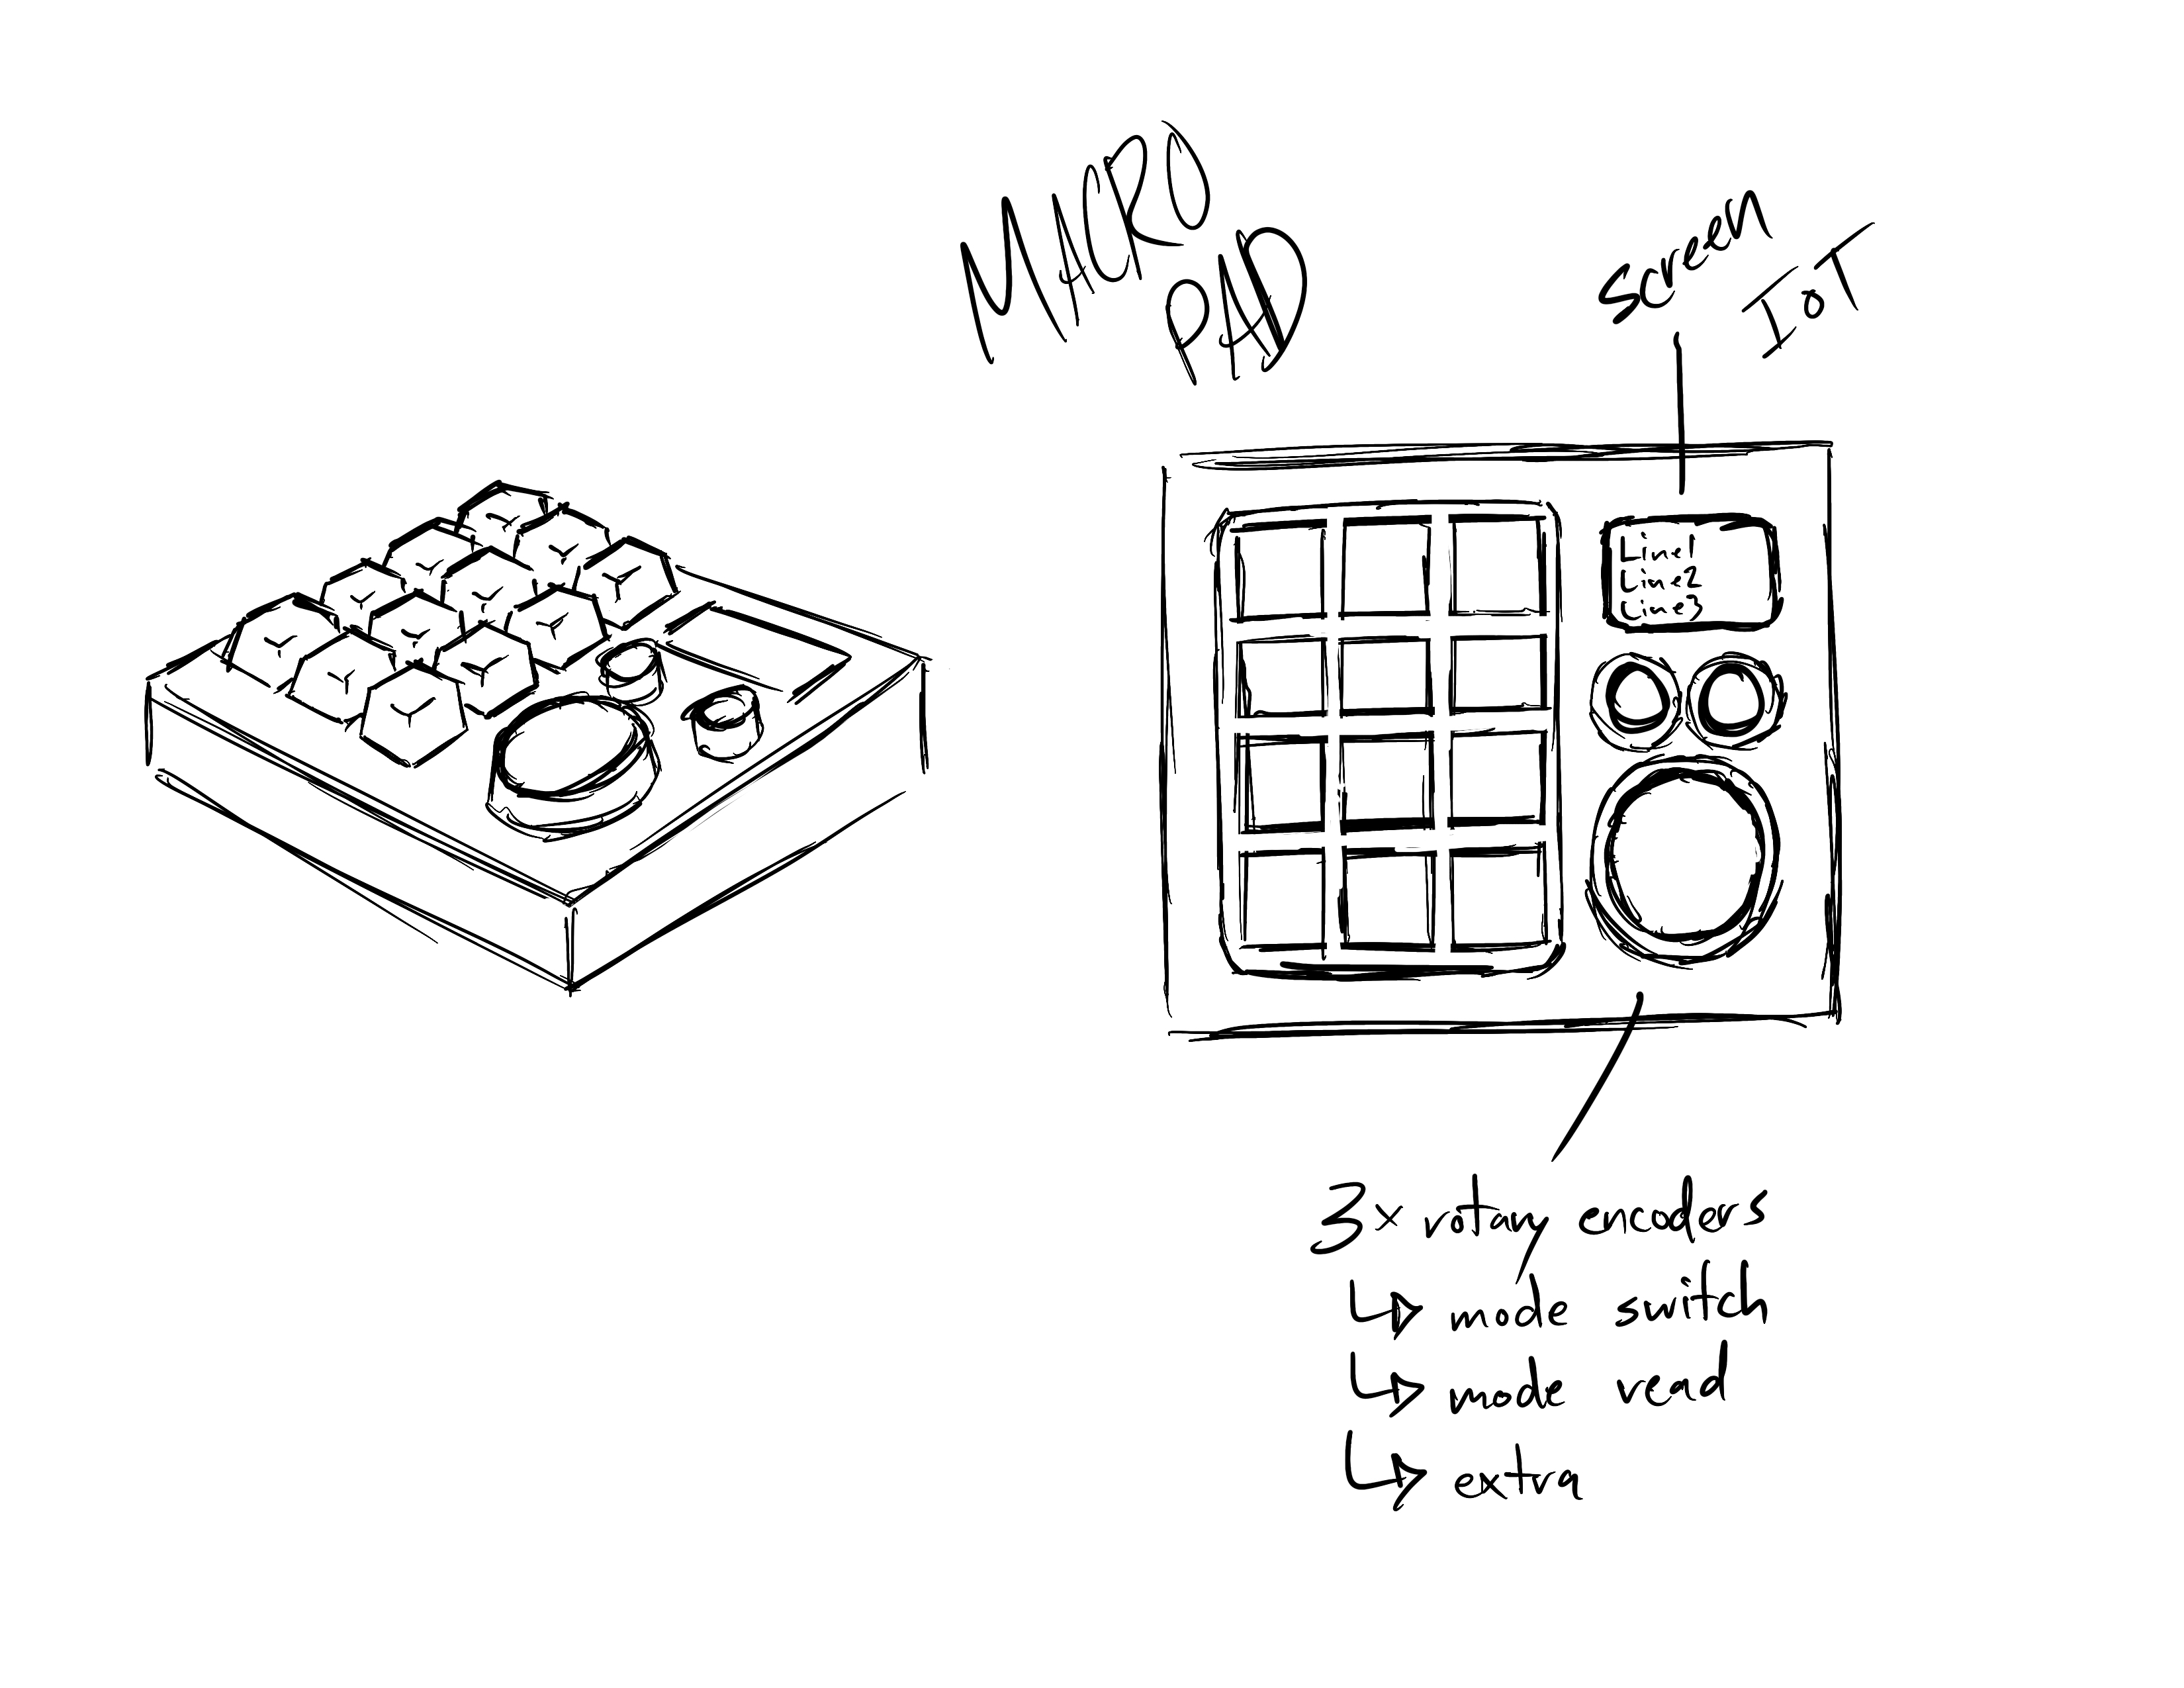 MACRO
PAD
Screen
IoT
Line1
Line2
Line3
3x rotary encoders
↳ mode switch
↳ mode read
↳ extra